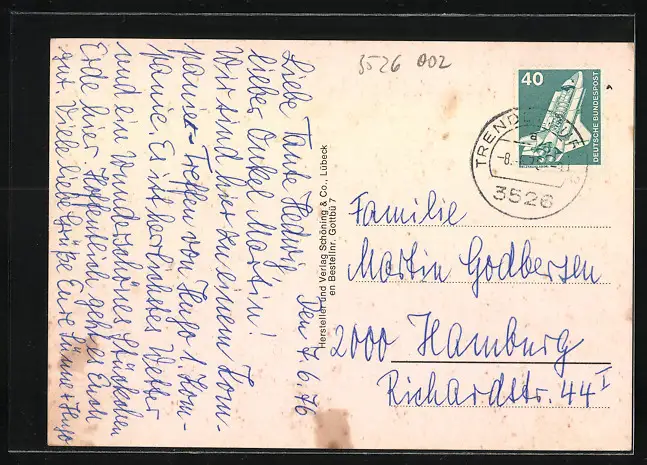 3526 002
40
DEUTSCHE BUNDESPOST
3526
Den 7.6.76
Liebe Tante Hedwig
lieber Onkel Martin!
Wir sind hier zu einem Kom-
panie-Treffen von Hugo 1. Kom-
panie. Es ist herrlichstes Wetter
und ein wunderschönes Stückchen
Erde hier. Hoffentlich geht es Euch
gut. Viele liebe Grüße Eure + Hugo
Hersteller und Verlag Schöning & Co., Lübeck
en Bestellnr. Gottbü 7
Familie
Martin Godbersen
2000 Hamburg
Richardstr. 44 I